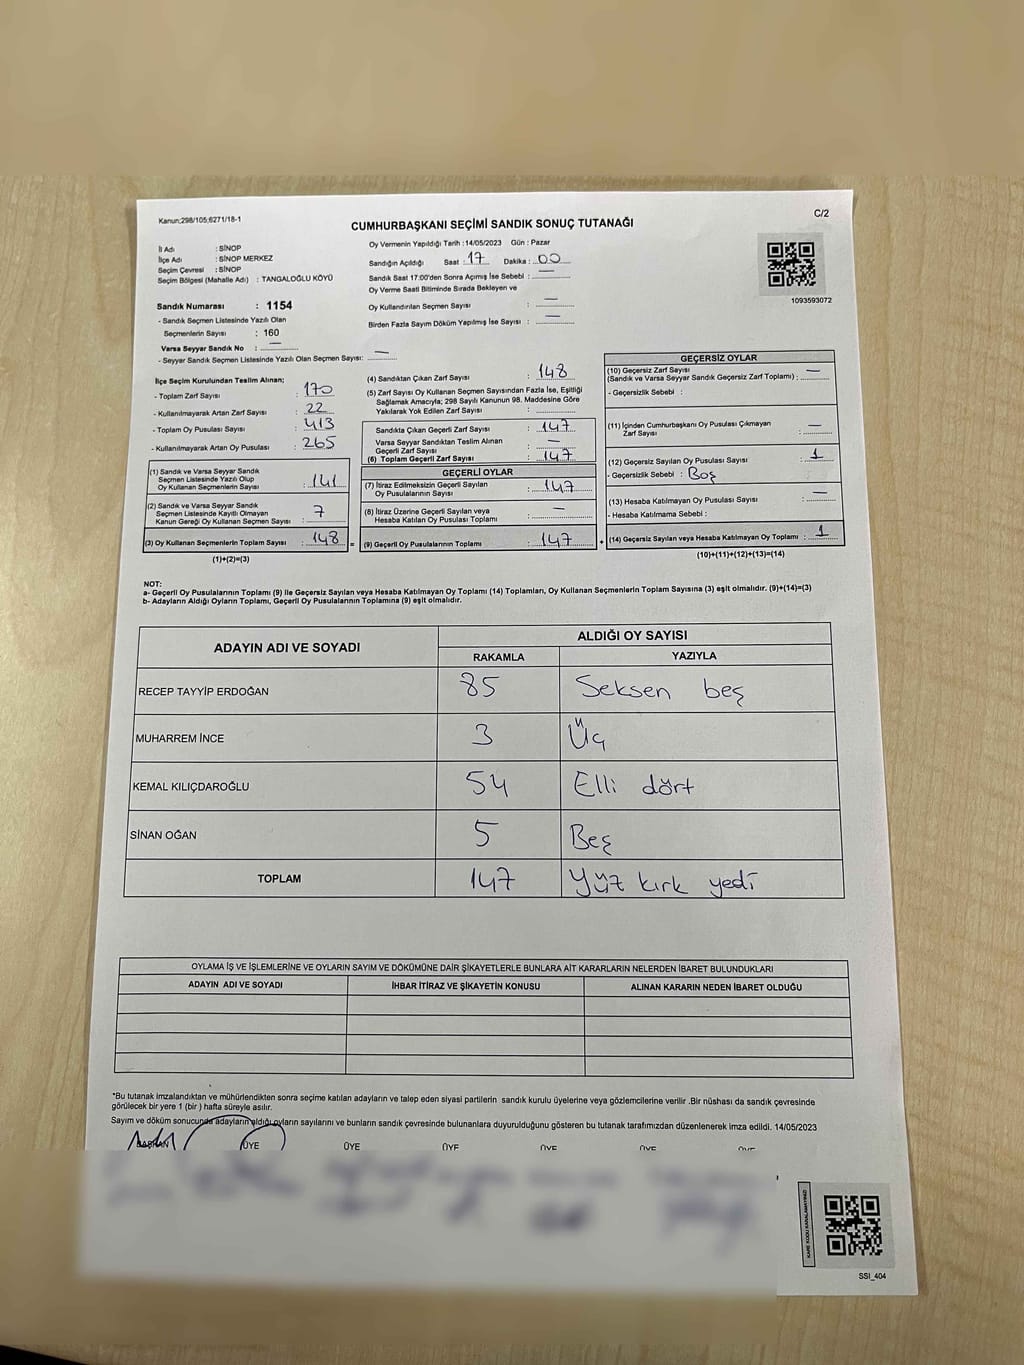 Kanun;298/105;6271/18-1
C/2
CUMHURBAŞKANI SEÇİMİ SANDIK SONUÇ TUTANAĞI
İl Adı : SİNOP
İlçe Adı : SİNOP MERKEZ
Seçim Çevresi : SİNOP
Seçim Bölgesi (Mahalle Adı) : TANGALOĞLU KÖYÜ
Sandık Numarası : 1154
- Sandık Seçmen Listesinde Yazılı Olan
Seçmenlerin Sayısı : 160
Varsa Seyyar Sandık No : —
- Seyyar Sandık Seçmen Listesinde Yazılı Olan Seçmen Sayısı: —
Oy Vermenin Yapıldığı Tarih :14/05/2023 Gün : Pazar
Sandığın Açıldığı Saat : 17 Dakika : 00
Sandık Saat 17:00'den Sonra Açımış İse Sebebi : —
Oy Verme Saati Bitiminde Sırada Bekleyen ve
Oy Kullandırılan Seçmen Sayısı : —
Birden Fazla Sayım Döküm Yapılmış İse Sayısı : —
1093593072
İlçe Seçim Kurulundan Teslim Alınan;
- Toplam Zarf Sayısı : 170
- Kullanılmayarak Artan Zarf Sayısı : 22
- Toplam Oy Pusulası Sayısı : 413
- Kullanılmayarak Artan Oy Pusulası : 265
(1) Sandık ve Varsa Seyyar Sandık
Seçmen Listesinde Yazılı Olup
Oy Kullanan Seçmenlerin Sayısı : 141
(2) Sandık ve Varsa Seyyar Sandık
Seçmen Listesinde Kayıtlı Olmayan
Kanun Gereği Oy Kullanan Seçmen Sayısı : 7
(3) Oy Kullanan Seçmenlerin Toplam Sayısı : 148 =
(1)+(2)=(3)
(4) Sandıktan Çıkan Zarf Sayısı : 148
(5) Zarf Sayısı Oy Kullanan Seçmen Sayısından Fazla İse, Eşitliği
Sağlamak Amacıyla; 298 Sayılı Kanunun 98. Maddesine Göre
Yakılarak Yok Edilen Zarf Sayısı :
Sandıkta Çıkan Geçerli Zarf Sayısı : 147
Varsa Seyyar Sandıktan Teslim Alınan
Geçerli Zarf Sayısı : —
(6) Toplam Geçerli Zarf Sayısı : 147
GEÇERLİ OYLAR
(7) İtiraz Edilmeksizin Geçerli Sayılan
Oy Pusulalarının Sayısı : 147
(8) İtiraz Üzerine Geçerli Sayılan veya
Hesaba Katılan Oy Pusulası Toplamı : —
(9) Geçerli Oy Pusulalarının Toplamı : 147 +
GEÇERSİZ OYLAR
(10) Geçersiz Zarf Sayısı
(Sandık ve Varsa Seyyar Sandık Geçersiz Zarf Toplamı) : —
- Geçersizlik Sebebi :
(11) İçinden Cumhurbaşkanı Oy Pusulası Çıkmayan
Zarf Sayısı : —
(12) Geçersiz Sayılan Oy Pusulası Sayısı : 1
- Geçersizlik Sebebi : Boş
(13) Hesaba Katılmayan Oy Pusulası Sayısı : —
- Hesaba Katılmama Sebebi :
(14) Geçersiz Sayılan veya Hesaba Katılmayan Oy Toplamı : 1
(10)+(11)+(12)+(13)=(14)
NOT:
a- Geçerli Oy Pusulalarının Toplamı (9) ile Geçersiz Sayılan veya Hesaba Katılmayan Oy Toplamı (14) Toplamları, Oy Kullanan Seçmenlerin Toplam Sayısına (3) eşit olmalıdır. (9)+(14)=(3)
b- Adayların Aldığı Oyların Toplamı, Geçerli Oy Pusulalarının Toplamına (9) eşit olmalıdır.
ADAYIN ADI VE SOYADI
ALDIĞI OY SAYISI
RAKAMLA YAZIYLA
RECEP TAYYİP ERDOĞAN 85 Seksen beş
MUHARREM İNCE 3 Üç
KEMAL KILIÇDAROĞLU 54 Elli dört
SİNAN OĞAN 5 Beş
TOPLAM 147 Yüz kırk yedi
OYLAMA İŞ VE İŞLEMLERİNE VE OYLARIN SAYIM VE DÖKÜMÜNE DAİR ŞİKAYETLERLE BUNLARA AİT KARARLARIN NELERDEN İBARET BULUNDUKLARI
ADAYIN ADI VE SOYADI İHBAR İTİRAZ VE ŞİKAYETİN KONUSU ALINAN KARARIN NEDEN İBARET OLDUĞU
*Bu tutanak imzalandıktan ve mühürlendikten sonra seçime katılan adayların ve talep eden siyasi partilerin sandık kurulu üyelerine veya gözlemcilerine verilir .Bir nüshası da sandık çevresinde
görülecek bir yere 1 (bir ) hafta süreyle asılır.
Sayım ve döküm sonucunda adayların aldığı oyların sayılarını ve bunların sandık çevresinde bulunanlara duyurulduğunu gösteren bu tutanak tarafımızdan düzenlenerek imza edildi. 14/05/2023
BAŞKAN ÜYE ÜYE ÜYE ÜYE ÜYE ÜYE
KARE KODU KARALAMAYINIZ!
SSI_404